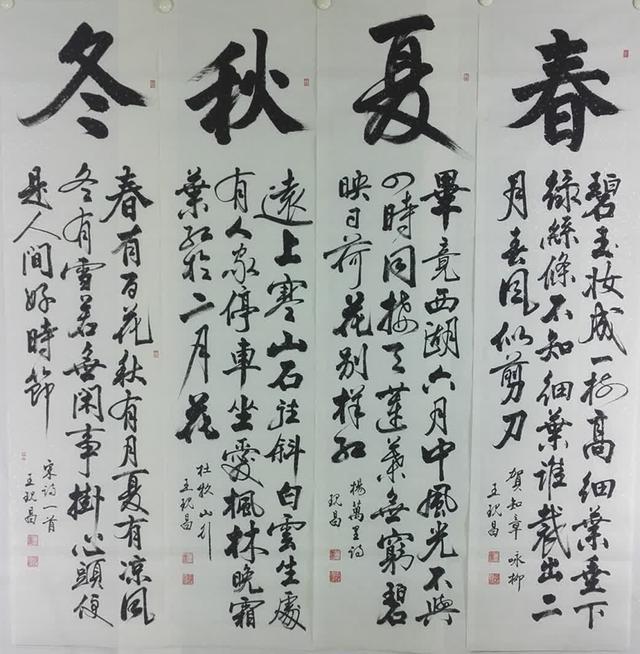 春
碧玉妆成一樹高細葉垂下
綠絲條不知細葉誰裁出二
月春風似剪刀
賀知章詠柳
王现昌
夏
畢竟西湖六月中風光不與
四時同接天蓮葉無窮碧
映日荷花別樣紅
楊萬里詩
现昌
秋
遠上寒山石徑斜白雲生處
有人家停車坐愛楓林晚霜
葉紅於二月花
杜牧山行
王现昌
冬
春有百花秋有月夏有凉風
冬有雪若無閑事掛心頭便
是人間好時節
宋詩一首
王现昌